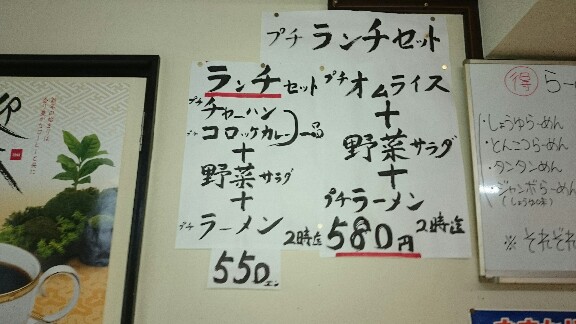 プチ ランチセット
ランチセット
プチ チャーハン
プチ コロッケカレー 一品
+
野菜サラダ
+
プチ ラーメン
2時迄
550エン
プチオムライス
+
野菜サラダ
+
プチラーメン
580円
2時迄
得 らー
・しょうゆらーめん
・とんこつらーめん
・タンタンめん
・ジャンボらーめん
(しょうゆのみ)
※それぞれ